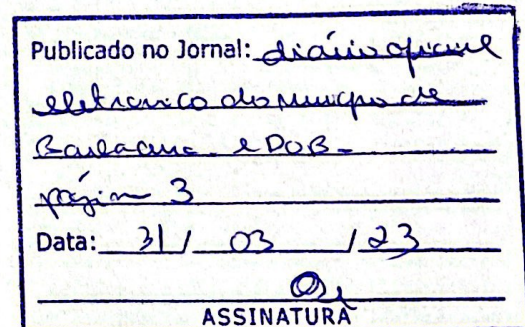 Publicado no Jornal: diário oficial
eletronico do municipio de
Barbacena - e DOB -
página 3
Data: 31 / 03 / 23
ASSINATURA